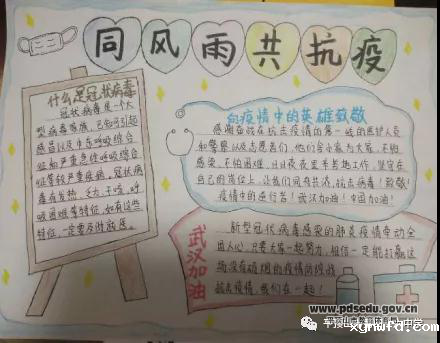 同风雨共抗疫
什么是冠状病毒
冠状病毒是一个大
型病毒家族，已知可引起
感冒以及中东呼吸综合
征和严重急性呼吸综合
征等较严重疾病，冠状病
毒有发热、乏力、干咳、呼
吸困难等特征，如有这些
特征，一定要及时就医。
向疫情中的英雄致敬
感谢奋战在抗击疫情的第一线的医护人员
和警察，以及志愿者们，他们舍小家为大家，不怕
感染，不怕困难，日日夜夜坚守
在自己的岗位上，让我们同舟共济，抗击病毒！致敬！
疫情中的逆行者！武汉加油！中国加油！
武汉加油
新型冠状病毒感染的肺炎疫情牵动全
国人心，只要大家一起努力，相信一定能打赢这
场没有硝烟的疫情防控战
抗击疫情，我们在一起！
www.pdsedu.gov.cn
平顶山市教育体育局
xgnwfd.com